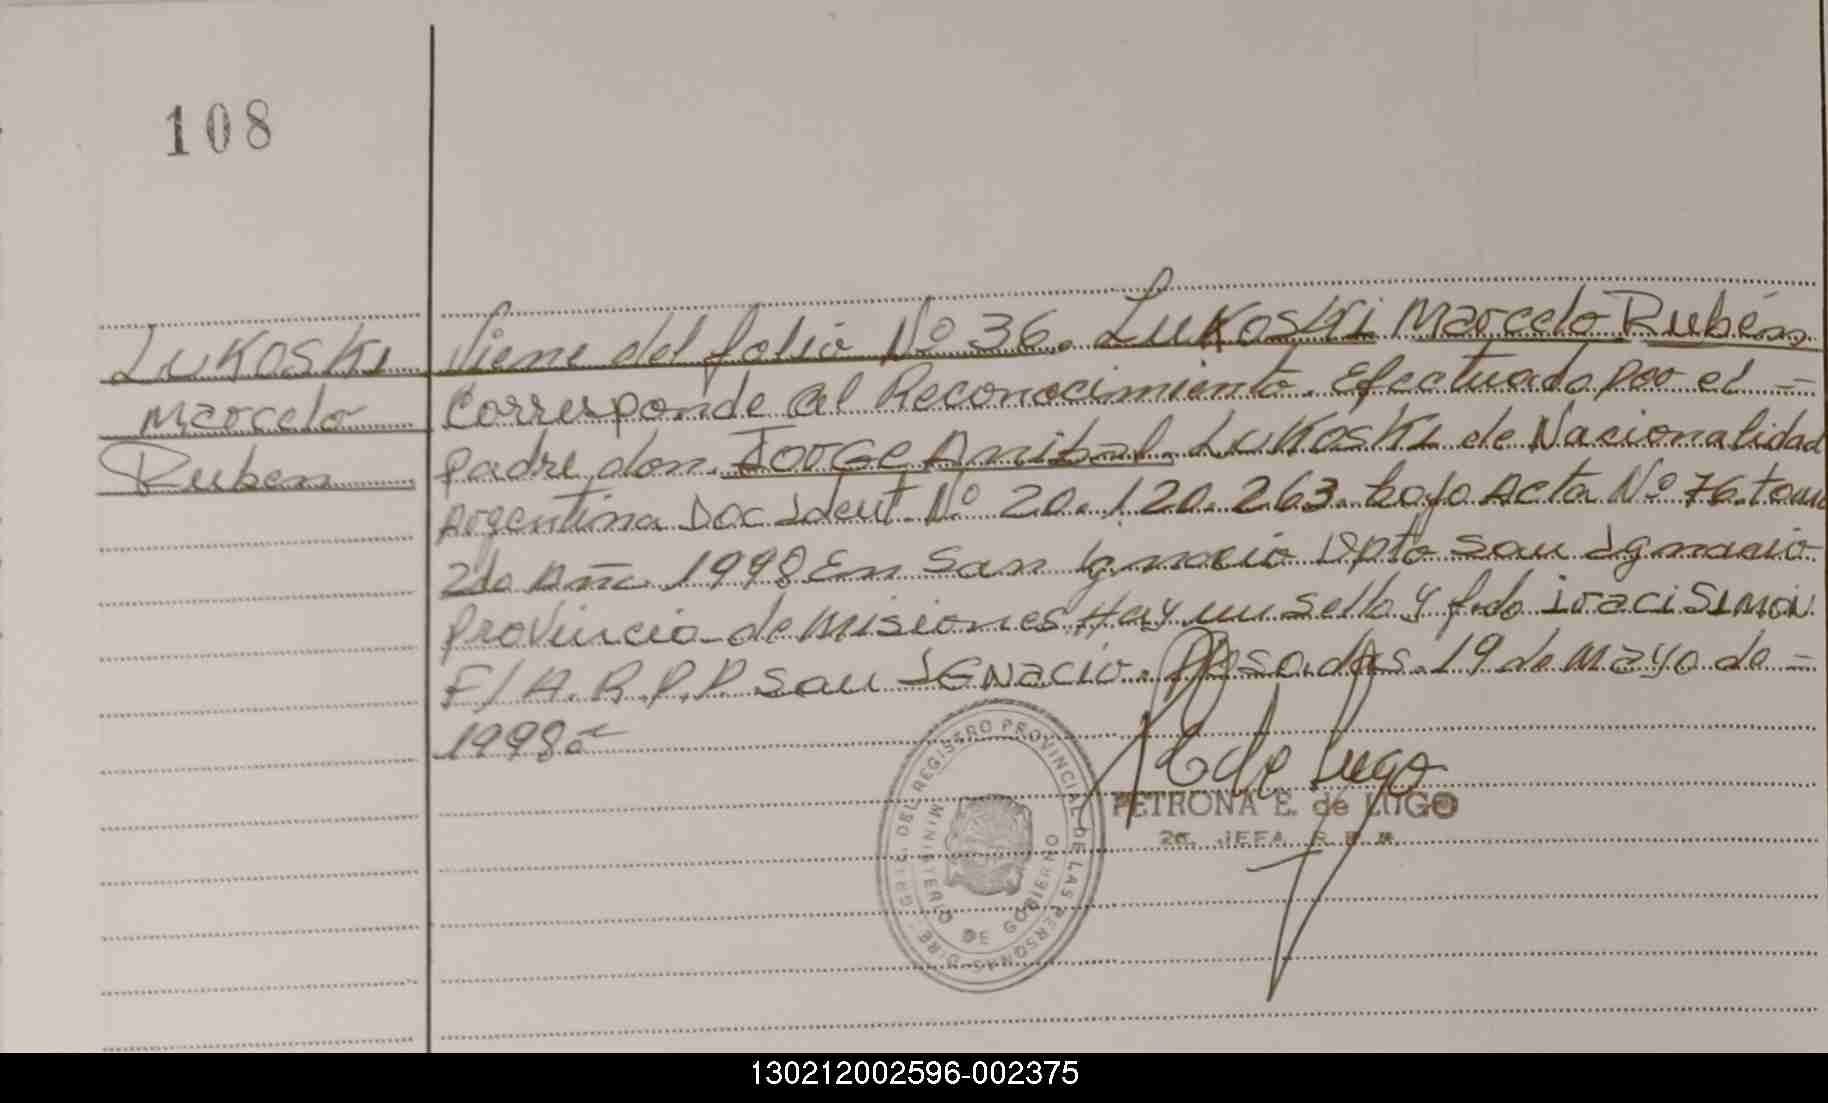 108
Lukoski
Marcelo
Ruben
Viene del folio Nº 36. Lukoski Marcelo Rubén
Corresponde al Reconocimiento. Efectuado por el =
padre don Jorge Anibal Lukoski de Nacionalidad
Argentina Doc Ident. Nº 20.120.263. bajo Acta Nº 76. tomo
2do Año 1998 En San Ignacio Dpto San Ignacio
Provincia de Misiones, Hay un sello y fdo iraci Simon
F/A.R.P.P San Ignacio. Posadas. 19 de Mayo de -
1998
P E de Lugo
PETRONA E. de LUGO
2a. JEFA R.P.P.
DIREC. GRAL. DEL REGISTRO PROVINCIAL DE LAS PERSONAS
MINISTERIO DE GOBIERNO
130212002596-002375